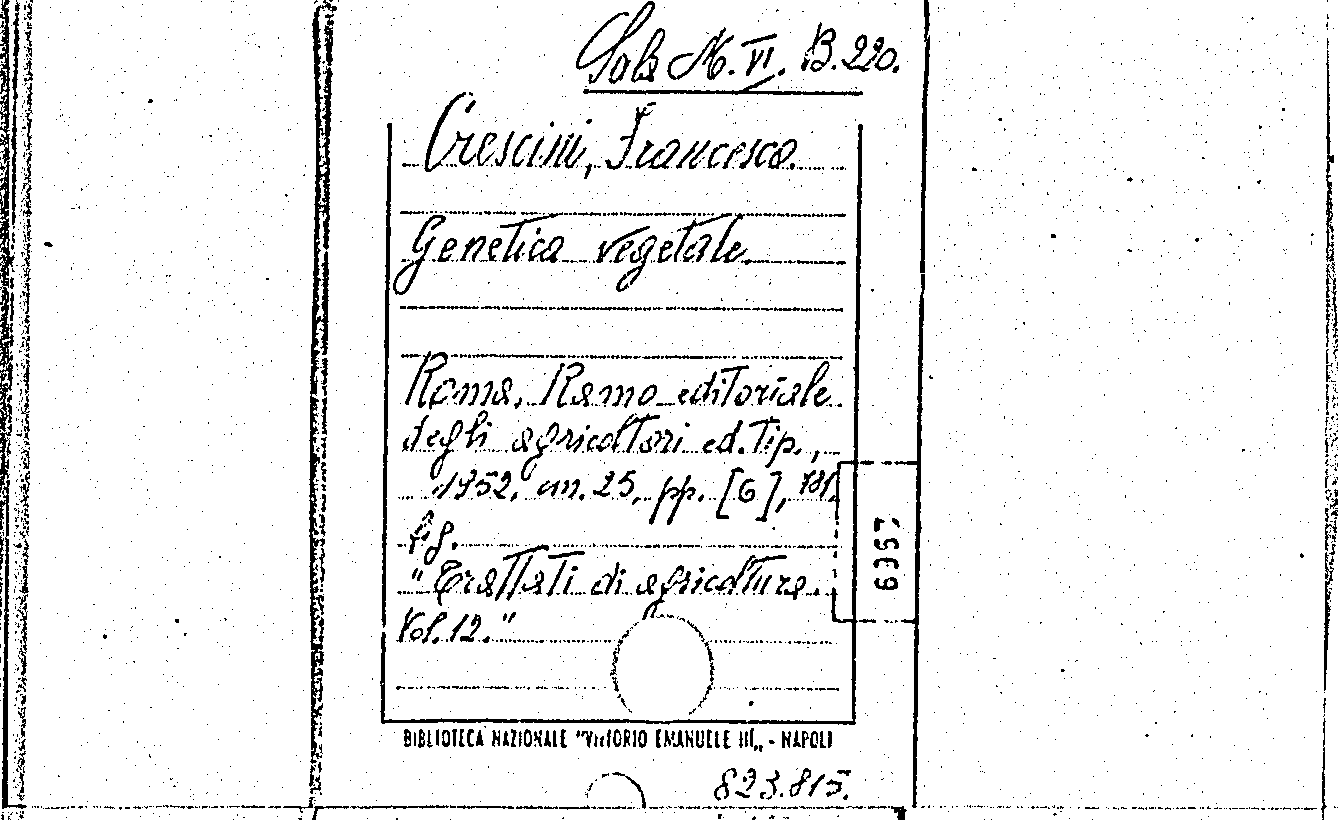 Sala M. VI. B. 220.
Crescini, Francesco.
Genetica vegetale.
Roma, Ramo editoriale
degli agricoltori ed. Tip.,
1952, cm. 25, pp. [6], 781.
fig.
"Trattati di agricoltura.
Vol. 12."
6367
BIBLIOTECA NAZIONALE "VITTORIO EMANUELE III„ - NAPOLI
823.815.